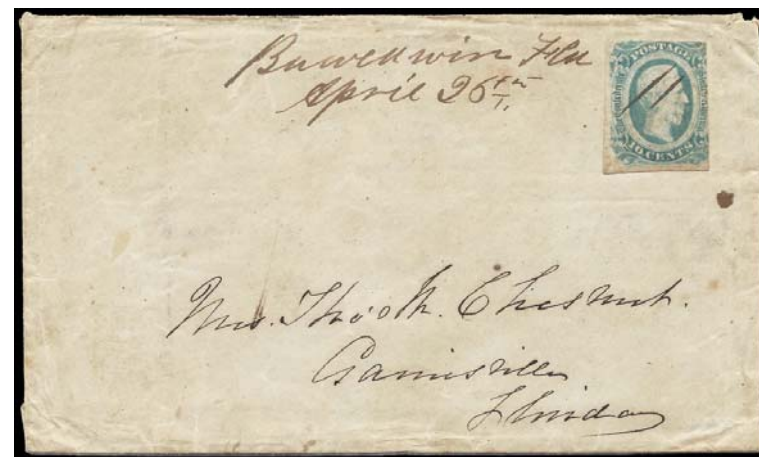 Bawldwin Fla
April 26th
POSTAGE
10 CENTS
Mrs. Thos M. Chesnut.
Gainisville
Florida